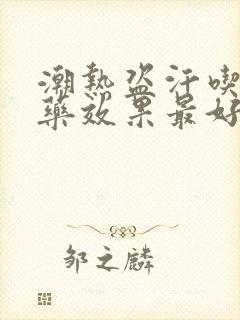 潮热盗汗喫
藥效果最好
邹之麟